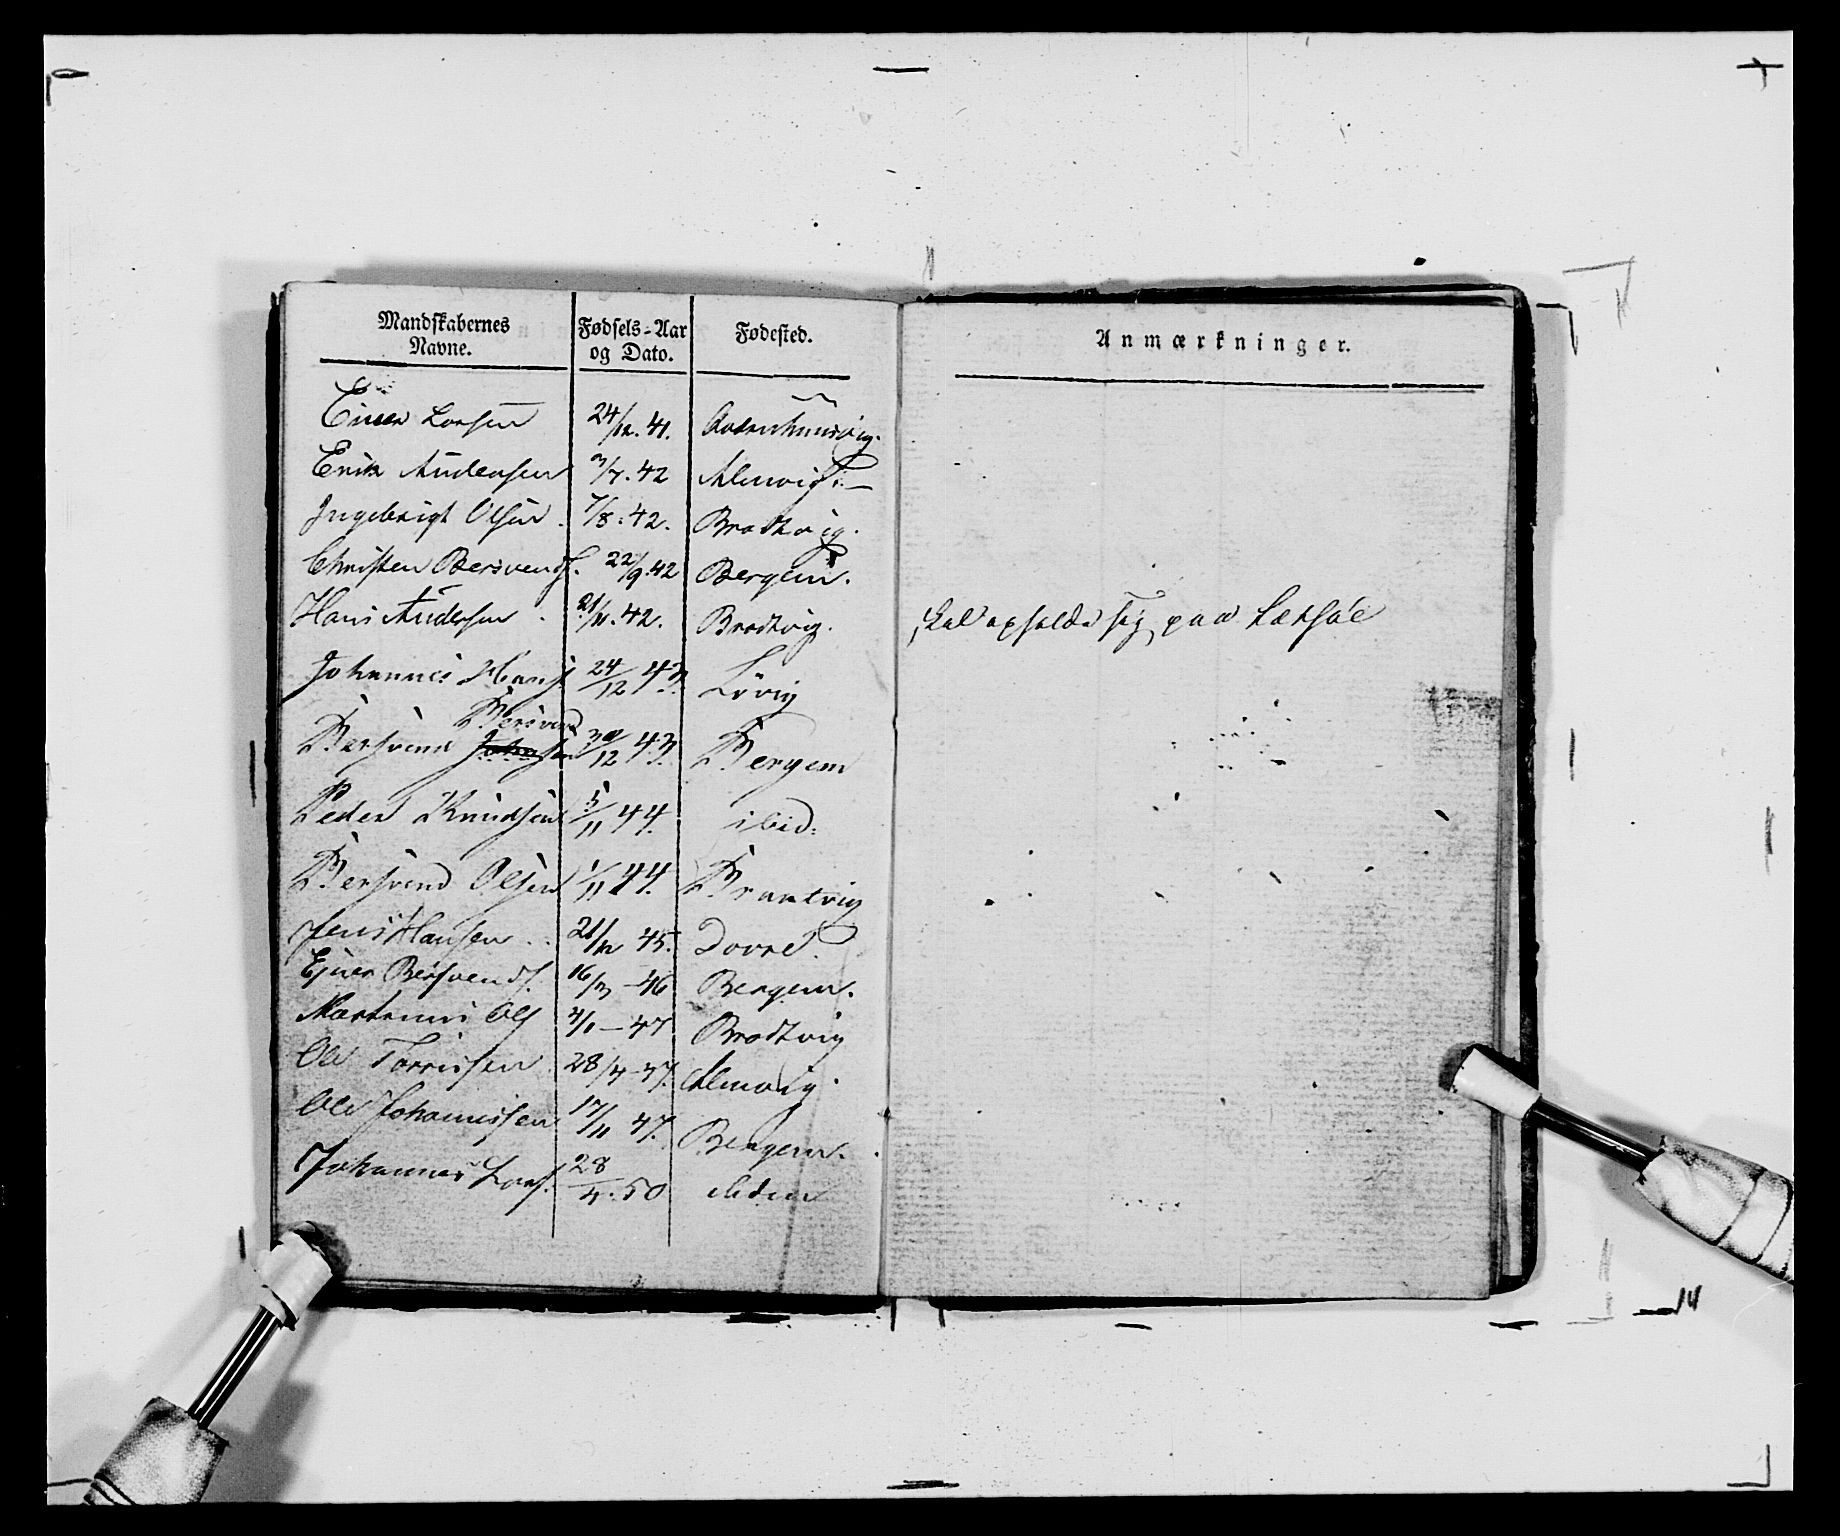 Mandskabernes Navne.
Fødsels-Aar og Dato.
Fødested.
Anmærkninger.
Einer Larsen 24/12. 41.
Erik Andersen 7/7. 42 Almvig
Ingebrigt Olsen. 7/8. 42. Brattvig.
Christen Bersvends. 22/9. 42 Bergem.
Hans Andersen. 21/11. 42. Brattvig. Skal opholde sig paa
Johannes Hans 24/12 43. Løvig
Bersvend Bersvend 30/12 43. Bergem
Peder Knudsen 5/11 44. ibid:
Bersvend Olsen 1/11 44. Brantvig
Jens Hansen 21/12 45. Dovre.
Ejner Bersvends. 16/3 - 46 Bergem.
Martinus Ols 4/1 - 47 Brattvig
Ole Torrissen 28/4 - 47. Almvig.
Ole Johannessen 17/11 47. Bergem.
Johannes Lars. 28/4. 50
14